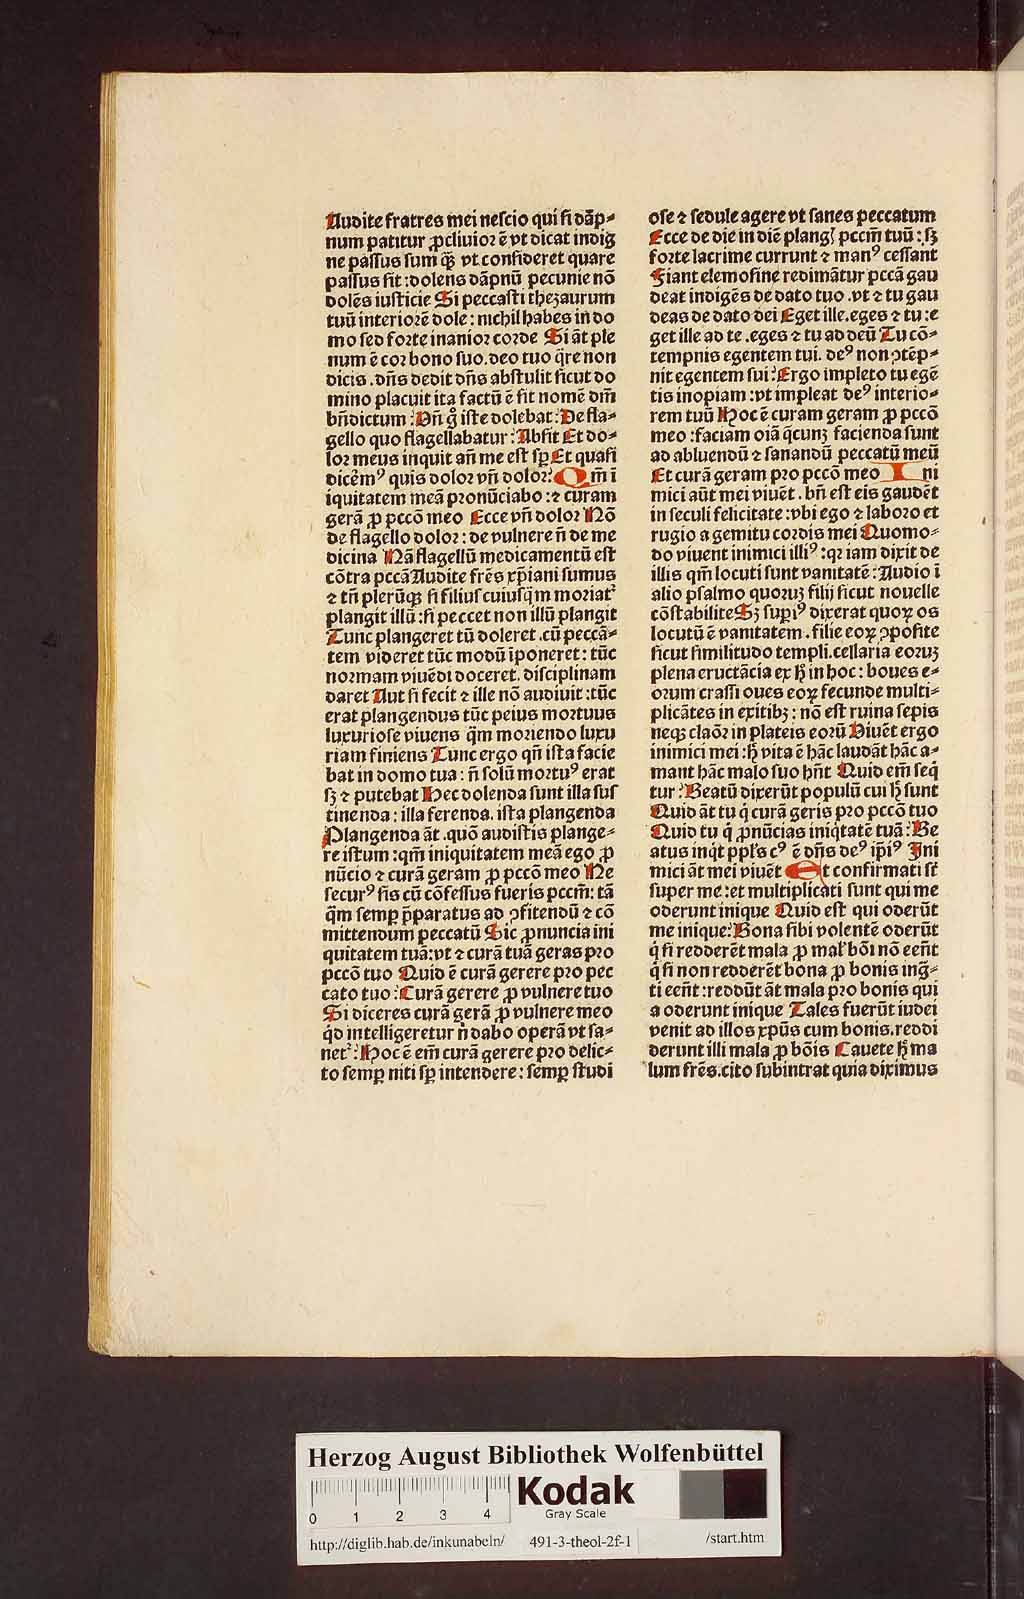 Audite fratres mei nescio qui si dāp⸗
num patitur ꝓcliuior ē vt dicat indig
ne passus sum qͥꝫ vt confideret quare
passus sit : dolens dāpnū pecunie nō
dolēs iusticie Si peccasti thezaurum
tuū interiorē dole : nichil habes in do
mo sed forte inanior corde Si āt ple
num ē cor bono suo. deo tuo q̄re non
dicis . dn̄s dedit dn̄s abstulit sicut do
mino placuit ita factū ē sit nomē dm̄
bn̄dictum : Vn̄ gͦ iste dolebat : De fla⸗
gello quo flagellabatur : Absit Et do⸗
lor meus inquit an̄ me est sꝑ Et quasi
dicēmꝰ quis dolor vn̄ dolor? Qm̄ ī
iquitatem meā pronūciabo : ⁊ curam
gerā ꝓ pccō meo Ecce vn̄ dolor Nō
de flagello dolor : de vulnere n̄ de me
dicina Nā flagellū medicamentū est
cōtra pccā Audite fr̄es xp̄iani sumus
⁊ tn̄ plerūqꝫ si filius cuiusq̄m moriatᷣ
plangit illū : si peccet non illū plangit
Tunc plangeret tū doleret .cū peccā⸗
tem videret tūc modū īponeret : tūc
normam viuēdi doceret. disciplinam
daret Aut si fecit ⁊ ille nō audiuit : tūc
erat plangendus tūc peius mortuus
luxuriose viuens q̄m moriendo luxu
riam finiens Tunc ergo qn̄ ista facie
bat in domo tua : n̄ solū mortuꝰ erat
sꝫ ⁊ putebat Hec dolenda sunt illa sus
tinenda : illa ferenda. ista plangenda
Plangenda āt .quō audistis plange⸗
re istum : qm̄ iniquitatem meā ego ꝓ
nūcio ⁊ curā geram ꝓ pccō meo Ne
securꝰ sis cū cōfessus fueris pccm̄ : tā
q̄m semꝑ p̄paratus ad ꝯfitendū ⁊ cō
mittendum peccatū Sic ꝓnuncia ini
quitatem tuā : vt ⁊ curā tuā geras pro
pccō tuo Quid ē curā gerere pro pec
cato tuo : Curā gerere ꝓ vulnere tuo
Si diceres curā gerā ꝓ vulnere meo
qͦd intelligeretur n̄ dabo operā vt sa⸗
netᷣ : Hoc ē em̄ curā gerere pro delic⸗
to semꝑ niti sꝑ intendere : semꝑ studi
ose ⁊ sedule agere vt sanes peccatum
Ecce de die in diē plangꝭ pccm̄ tuū : sꝫ
forte lacrime currunt ⁊ manꝰ cessant
Fiant elemosine redimātur pccā gau
deat indigēs de dato tuo .vt ⁊ tu gau
deas de dato dei Eget ille. eges ⁊ tu : e
get ille ad te .eges ⁊ tu ad deū Tu cō⸗
tempnis egentem tui. deꝰ non ꝯtēp⸗
nit egentem sui : Ergo impleto tu egē
tis inopiam : vt impleat deꝰ interio⸗
rem tuū Hoc ē curam geram ꝓ pccō
meo : faciam oīa q̄cunꝫ facienda sunt
ad abluendū ⁊ sanandū peccatū meū
Et curā geram pro pccō meo Ini
mici aūt mei viuēt . bn̄ est eis gaudēt
in seculi felicitate : vbi ego ⁊ laboro et
rugio a gemitu cordis mei Quomo⸗
do viuent inimici illiꝰ : qꝛ iam dixit de
illis qm̄ locuti sunt vanitatē : Audio ī
alio psalmo quoruꝫ filij sicut nouelle
cōstabilite Sꝫ supiꝰ dixerat quoꝝ os
locutū ē vanitatem . filie eoꝝ ꝯposite
sicut similitudo templi. cellaria eoruꝫ
plena eructācia ex hͨ in hoc : boues e⸗
orum crassi oues eoꝝ fecunde multi⸗
plicātes in exitibꝫ : nō est ruina sepis
neqꝫ claōr in plateis eorū Viuēt ergo
inimici mei : hͨ vita ē hāc laudāt hāc a⸗
mant hāc malo suo hn̄t Quid em̄ seqͥ
tur : Beatū dixerūt populū cui hͨ sunt
Quid āt tu qͥ curā geris pro pccō tuo
Quid tu qͥ ꝓnūcias iniqͥtatē tuā : Be
atus inqͥt ppl̄s cꝰ ē dn̄s deꝰ ip̄iꝰ Ini
mici āt mei viuēt Et confirmati st̄
super me : et multiplicati sunt qui me
oderunt inique Quid est qui oderūt
me inique : Bona sibi volentē oderūt
qͥ si redderēt mala ꝓ malꝭ bōi nō een̄t
qͥ si non redderēt bona ꝓ bonis ing̈⸗
ti een̄t : reddūt āt mala pro bonis qui
a oderunt inique Tales fuerūt iudei
venit ad illos xp̄us cum bonis. reddi
derunt illi mala ꝓ bōis Cauete hͨ ma
lum fr̄es. cito subintrat quia diximus
Herzog August Bibliothek Wolfenbüttel
Kodak
Gray Scale
0 1 2 3 4
http://diglib.hab.de/inkunabeln/ 491-3-theol-2f-1 /start.htm